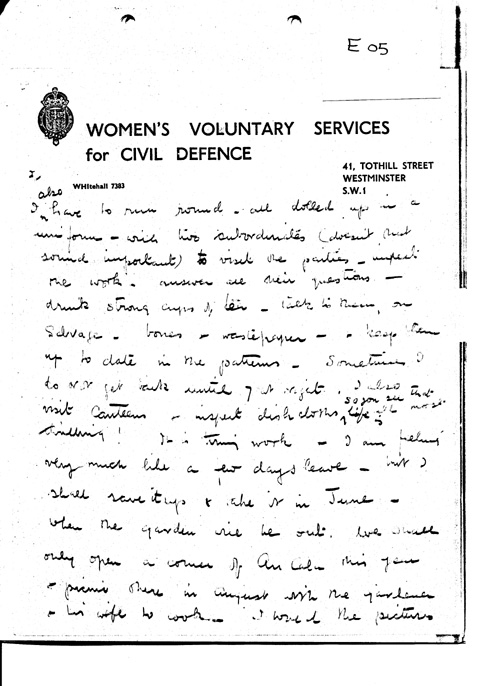 E 05
WOMEN'S VOLUNTARY SERVICES
for CIVIL DEFENCE
41, TOTHILL STREET
WESTMINSTER
S.W.1
WHItehall 7383
also
I have to run round - all dolled up in a
uniform - with two subordinates (doesn't that
sound important) to visit the parties - inspect
the work - answer all their questions -
drink strong cups of tea - talk to them, on
Salvage - bones - wastepaper - & keep them
up to date in the patterns - Sometimes I
do not get back until 7 at night. I also
so you see that
visit Canteens - inspect dishcloths, life is most
thrilling! It is tiring work - I am feeling
very much like a few days leave - but I
shall save it up & take it in June -
when the garden will be out. We shall
only open a corner of An Cala this year
& picnic there in August with the gardener
& his wife to cook - I loved the pictures